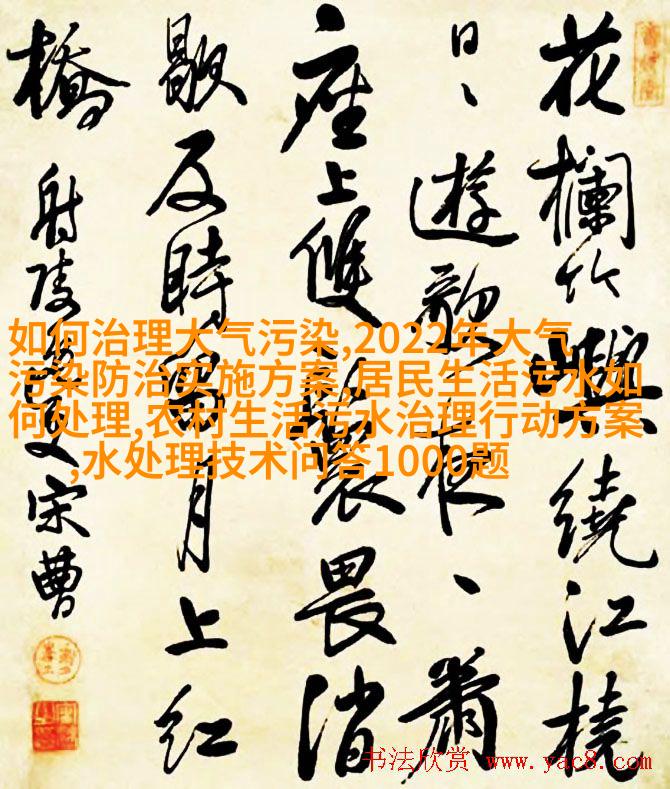 花欄竹嶼繞江橈
日〻遊歌夜〻簫
座上雙鬟畏消
歇反時當月上紅
橋
射陵叟宋曹
如何治理大气污染,2022年大气
污染防治实施方案,居民生活污水如
何处理,农村生活污水治理行动方案
,水处理技术问答1000题
书法欣赏 www.yac8.com